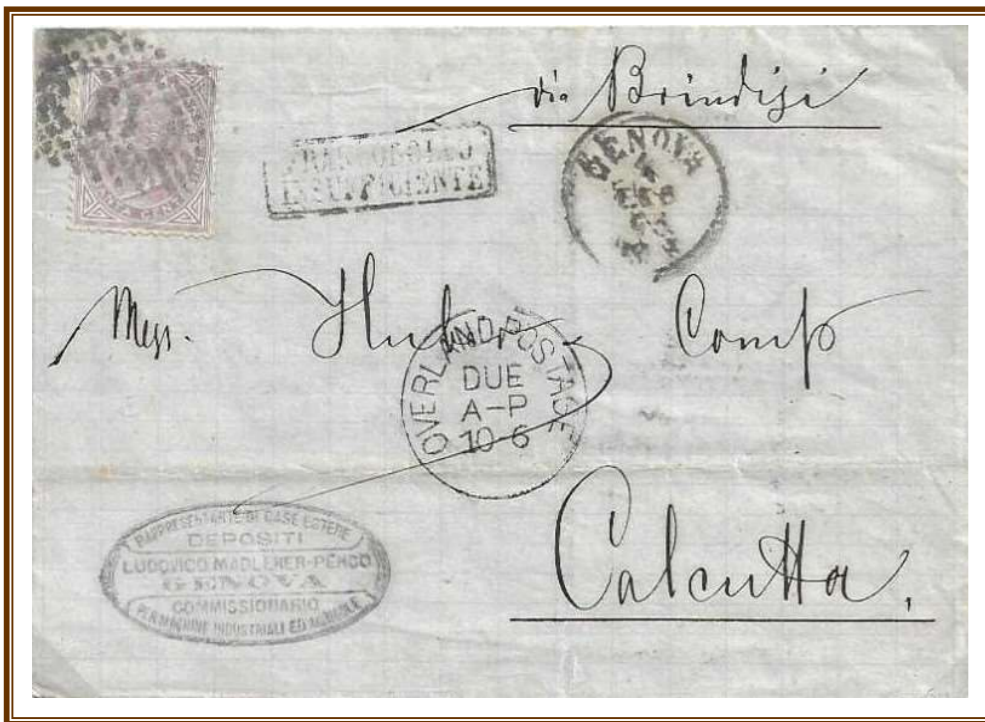 via Brindisi
FRANCOBOLLO
INSUFFICIENTE
GENOVA
4
Mess. Comp
OVERLAND POSTAGE
DUE
A-P
10-6
Calcutta,
RAPPRESENTANTE DI CASE ESTERE
DEPOSITI
LUDOVICO MADLENER-PENCO
GENOVA
COMMISSIONARIO
PER MACHINE INDUSTRIALI ED AGRICOLE
CENT